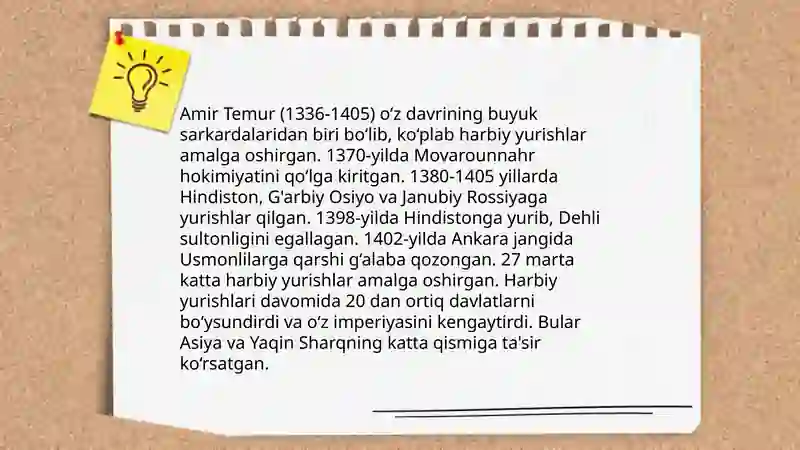 Amir Temur (1336-1405) o‘z davrining buyuk
sarkardalaridan biri bo‘lib, ko‘plab harbiy yurishlar
amalga oshirgan. 1370-yilda Movarounnahr
hokimiyatini qo‘lga kiritgan. 1380-1405 yillarda
Hindiston, G'arbiy Osiyo va Janubiy Rossiyaga
yurishlar qilgan. 1398-yilda Hindistonga yurib, Dehli
sultonligini egallagan. 1402-yilda Ankara jangida
Usmonlilarga qarshi g‘alaba qozongan. 27 marta
katta harbiy yurishlar amalga oshirgan. Harbiy
yurishlari davomida 20 dan ortiq davlatlarni
bo‘ysundirdi va o‘z imperiyasini kengaytirdi. Bular
Asiya va Yaqin Sharqning katta qismiga ta'sir
ko‘rsatgan.